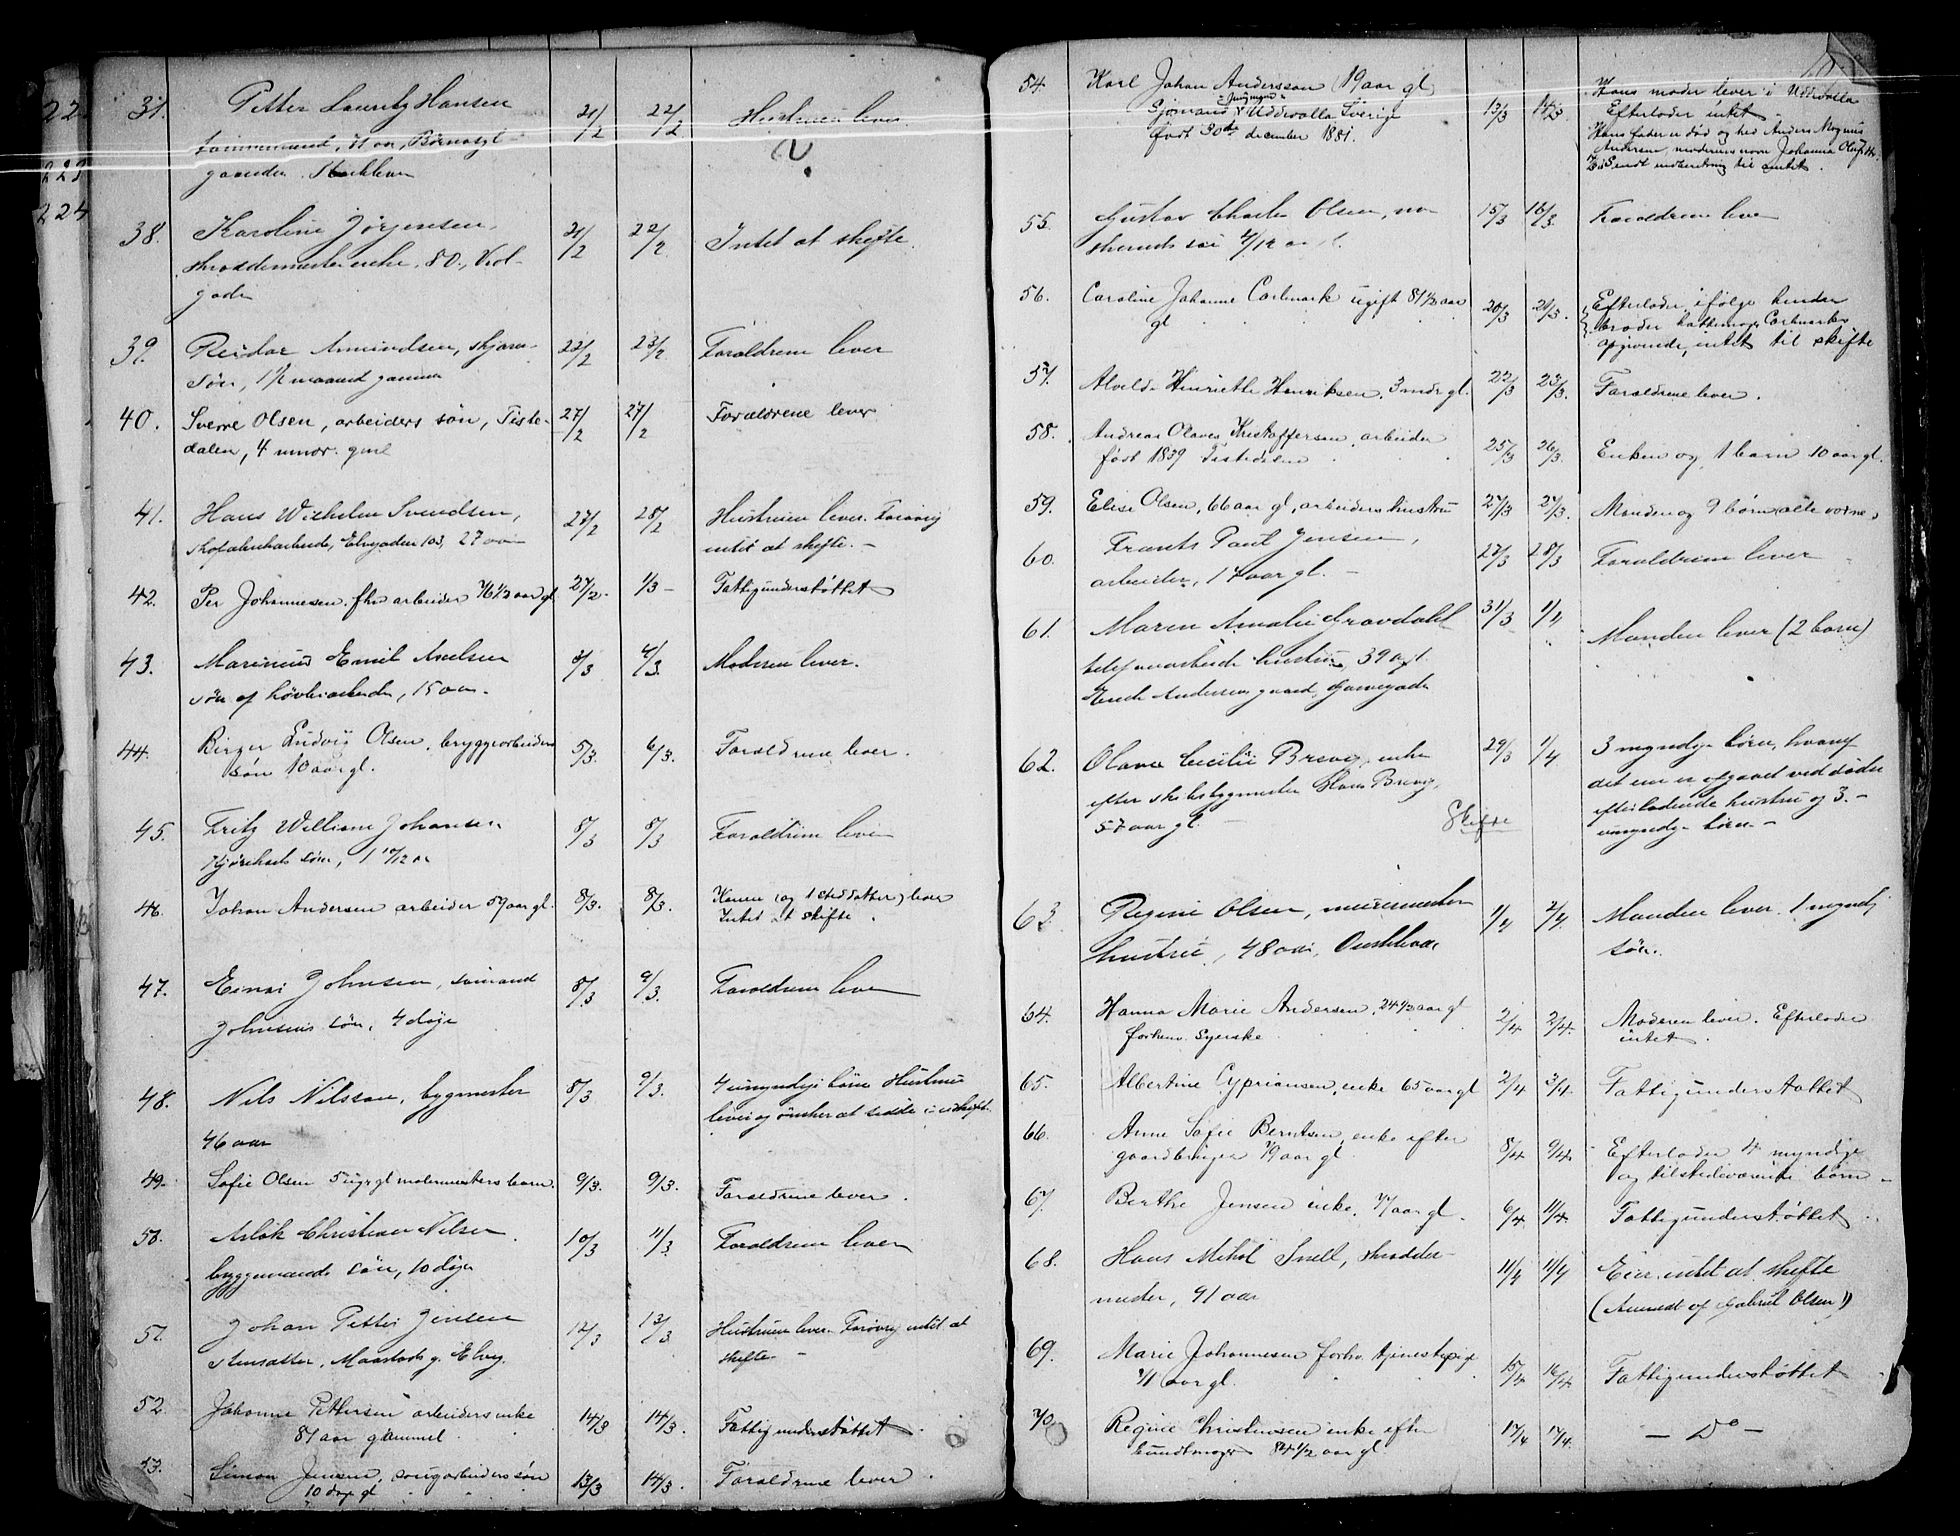 22
223
224
37. Petter Lauritz Hansen 21/2 22/2 Hustruen lever
tømmermand, 71 aar, Børnas gl
38. Karoline Jørgensen, 21/2 22/2 Intet at skifte.
skræddermester enke, 80, Ved-
gaden
39. Reidar Amundsen, skjærer- 22/2 23/2 Forældrene lever
søn, 1 1/2 maaned gammel
40. Sverre Olsen, arbeiders søn, Tiste- 27/2 27/2 Forældrene lever
dalen, 4 mndr. gml
41. Hans Wilhelm Svendsen, 27/2 28/2 Hustruen lever. Forøvrig
skofabrikarbeider, Elvegaden 103, 27 aar intet at skifte. —
42. Per Johannesen. fhv arbeider 76 1/2 aar gl 27/2 — 1/3 — Fattigunderstøttet
43. Marinius Emil Axelsen 3/3 4/3 Moderen lever.
søn af høvleriarbeider, 15 aar.
44. Birger Ludvig Olsen, bryggearbeiders 5/3. 6/3. Forældrene lever.
søn 10 aar gl.
45. Fritz William Johansen 8/3 8/3 Forældrene lever
søn, 1 10/12 aar
46. Johan Andersen arbeider 59 aar gl. 8/3. 8/3. Konen (og 1 steddatter) lever
Intet at skifte.
47. Einar Johnsen, sømand 8/3 9/3. Forældrene lever
Johnsens søn, 4 dage
48. Nils Nilsson, bygmester 8/3 9/3. 4 umyndige børn Hustruen
lever og ønsker at sidde i uskifte.
46 aar
49. Sofie Olsen 5 uger gl malermesters barn. 9/3. 9/3. Forældrene lever.
50. Aslak Christian Nilsen 10/3 11/3 Forældrene lever
byggemands søn, 10 dage
51. Johan Petter Jensen 12/3 13/3 Hustruen lever. Forøvrig intet at
stensætter, Maastads g. Elveg. skifte —
52. Johanne Pettersen arbeiders enke 14/3 14/3. Fattigunderstøttet.
81 aar gammel.
53. Simon Jensen, saugarbeiders søn 13/3 14/3. Forældrene lever.
10 dage gl
54. Karl Johan Andersson 19 aar gl 13/3 14/3 Hans moder lever i Uddevalla
Sjømand Uddevalla Sverige Efterlader intet.
født 30te december 1881. Hans fader er død og hed Anders Magnus
Andersen, moderens navn Johanna Olufsdtr.
Sendt indberetning til amtet.
55. Gustav Charles Olsen, 15/3 16/3. Forældrene lever
søn 4/12 aar gl.
56. Caroline Johanne Carlmark ugift 81 1/2 aar 20/3 21/3. Efterlader ifølge hendes
gl broder hattemager Carlmarks
opgivende, intet til skifte
57. Alvilde Henriette Henriksen, 3 mdr gl. 22/3 23/3. Forældrene lever.
58. Andreas Olaves Kristoffersen, arbeider 25/3 26/3. Enken og 1 barn 10 aar gl.
født 1839 Tistedalen
59. Elise Olsen, 66 aar gl, arbeiders hustru 27/3 27/3. Manden og 9 børn alle voxne.
60. Frants Paul Jensen, 27/3 28/3 Forældrene lever
arbeider, 17 aar gl. —
61. Maren Amalie Gravdahl 31/3 1/4 Manden lever (2 barn)
telefonarbeiders hustru, 39 a. gl.
62. Olava Cecilie Brevig, enke 29/3 1/4 3 myndige børn, hvoraf
efter skibsbygmester Hans Brevig, det ene er afgaaet ved døden
57 aar gl. — Skifte efterladende hustru og 3. —
umyndige børn. —
63. Regine Olsen, murermester 1/4 2/4. Manden lever. 1 myndig
hustru, 48 aar, søn.
64. Hanna Marie Andersen, 24 1/2 aar gl 2/4 2/4. Moderen lever. Efterlader
forhenv. Syerske intet.
65. Albertine Cypriansen, enke 65 aar gl 2/4 3/4. Fattigunderstøttet
66. Anne Sofie Berntsen, enke efter 8/4 9/4. Efterlader 4 myndige
gaardbruger 79 aar gl. og tilstedeværende børn —
67. Berthe Jensen enke, 77 aar gl. 6/4 11/4 Fattigunderstøttet.
68. Hans Mikal Snell, skrædder- 11/4 11/4 Eier intet at skifte
mester, 91 aar (Anmeldt af Gabriel Olsen)
69. Marie Johannesen forhv. tjenestepige 15/4 16/4 Fattigunderstøttet
71 aar gl.
70. Regine Christensen enke efter 17/4 17/4. — Do —
buntmager 84 1/2 aar gl